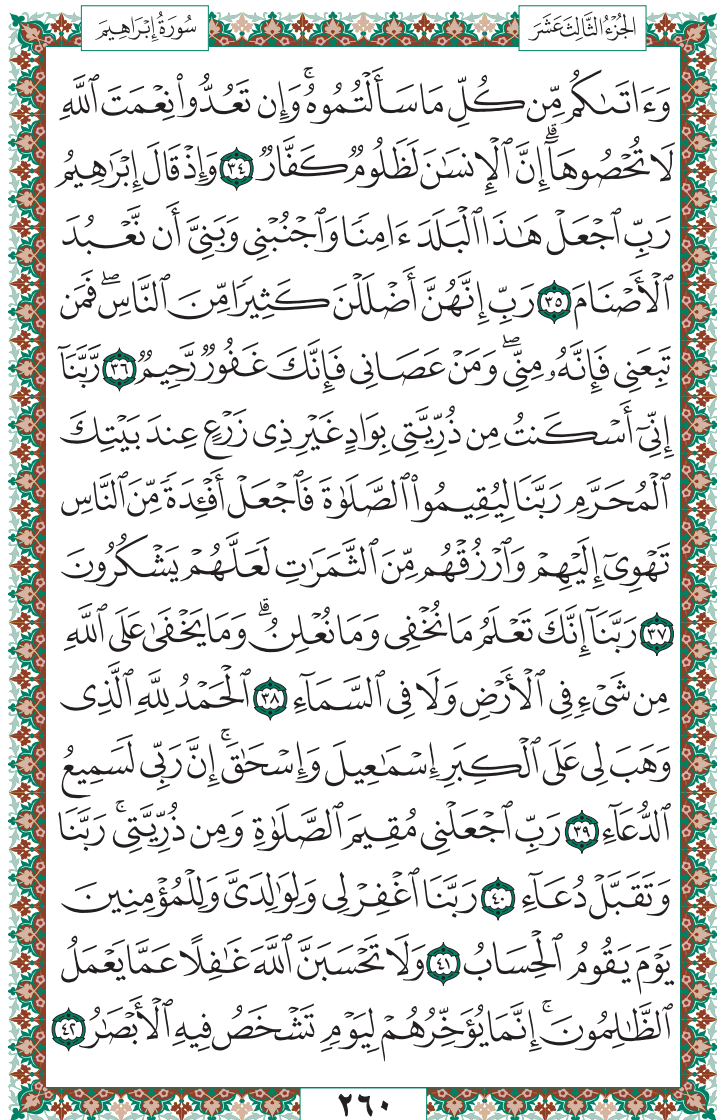 سُورَةُ إِبْرَاهِيمَ
الجُزْءُ الثَّالِثَ عَشَرَ
وَءَاتَىٰكُم مِّن كُلِّ مَا سَأَلْتُمُوهُۚ وَإِن تَعُدُّوا۟ نِعْمَتَ ٱللَّهِ
لَا تُحْصُوهَآۗ إِنَّ ٱلْإِنسَٰنَ لَظَلُومٌ كَفَّارٌ ٣٤ وَإِذْ قَالَ إِبْرَٰهِيمُ
رَبِّ ٱجْعَلْ هَٰذَا ٱلْبَلَدَ ءَامِنًا وَٱجْنُبْنِى وَبَنِىَّ أَن نَّعْبُدَ
ٱلْأَصْنَامَ ٣٥ رَبِّ إِنَّهُنَّ أَضْلَلْنَ كَثِيرًا مِّنَ ٱلنَّاسِۖ فَمَن
تَبِعَنِى فَإِنَّهُۥ مِنِّىۖ وَمَنْ عَصَانِى فَإِنَّكَ غَفُورٌ رَّحِيمٌ ٣٦ رَّبَّنَآ
إِنِّىٓ أَسْكَنتُ مِن ذُرِّيَّتِى بِوَادٍ غَيْرِ ذِى زَرْعٍ عِندَ بَيْتِكَ
ٱلْمُحَرَّمِ رَبَّنَا لِيُقِيمُوا۟ ٱلصَّلَوٰةَ فَٱجْعَلْ أَفْـِٔدَةً مِّنَ ٱلنَّاسِ
تَهْوِىٓ إِلَيْهِمْ وَٱرْزُقْهُم مِّنَ ٱلثَّمَرَٰتِ لَعَلَّهُمْ يَشْكُرُونَ
٣٧ رَبَّنَآ إِنَّكَ تَعْلَمُ مَا نُخْفِى وَمَا نُعْلِنُۗ وَمَا يَخْفَىٰ عَلَى ٱللَّهِ
مِن شَىْءٍ فِى ٱلْأَرْضِ وَلَا فِى ٱلسَّمَآءِ ٣٨ ٱلْحَمْدُ لِلَّهِ ٱلَّذِى
وَهَبَ لِى عَلَى ٱلْكِبَرِ إِسْمَٰعِيلَ وَإِسْحَٰقَۚ إِنَّ رَبِّى لَسَمِيعُ
ٱلدُّعَآءِ ٣٩ رَبِّ ٱجْعَلْنِى مُقِيمَ ٱلصَّلَوٰةِ وَمِن ذُرِّيَّتِىۚ رَبَّنَا
وَتَقَبَّلْ دُعَآءِ ٤٠ رَبَّنَا ٱغْفِرْ لِى وَلِوَٰلِدَىَّ وَلِلْمُؤْمِنِينَ
يَوْمَ يَقُومُ ٱلْحِسَابُ ٤١ وَلَا تَحْسَبَنَّ ٱللَّهَ غَٰفِلًا عَمَّا يَعْمَلُ
ٱلظَّٰلِمُونَۚ إِنَّمَا يُؤَخِّرُهُمْ لِيَوْمٍ تَشْخَصُ فِيهِ ٱلْأَبْصَٰرُ ٤٢
٢٦٠